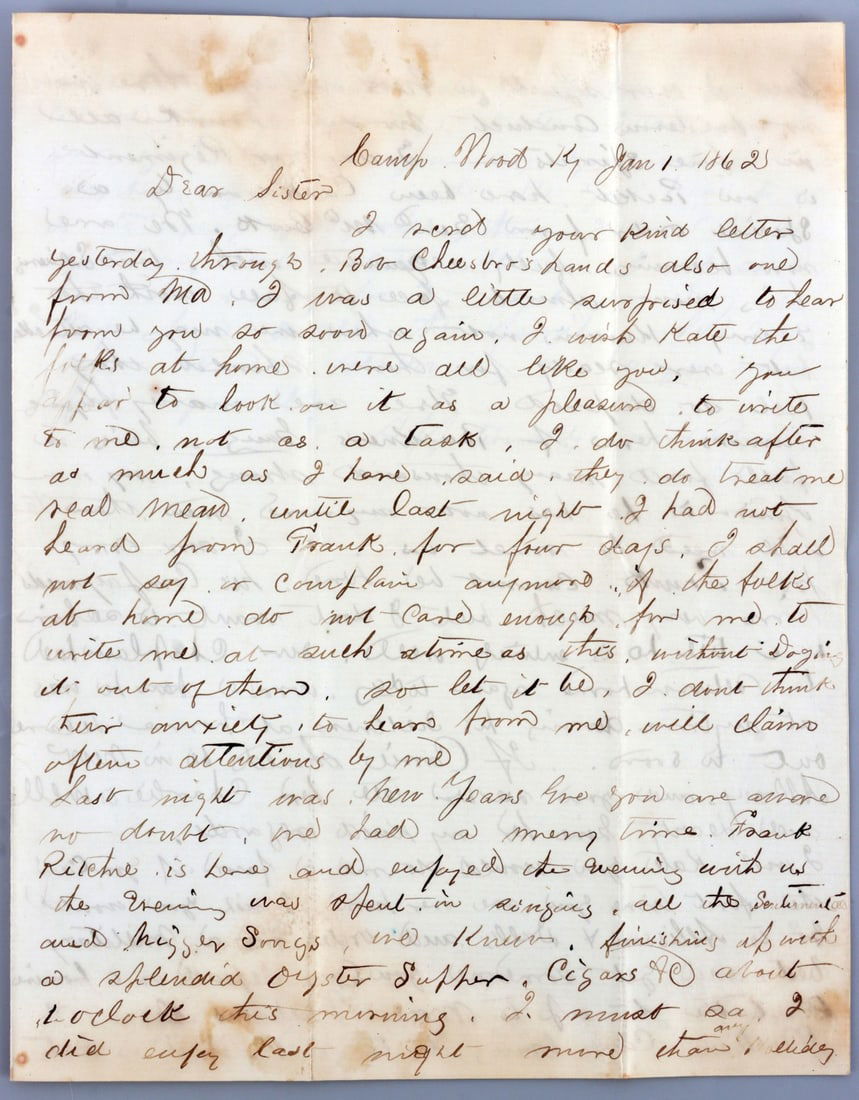 Camp Wood Ky Jan 1. 1862
Dear Sister
I recd your kind letter
yesterday through Bob Cheesbro's hands also one
from Ma. I was a little surprised to hear
from you so soon again. I wish Kate the
folks at home were all like you, you
appear to look on it as a pleasure to write
to me, not as a task, I do think after
as much as I have said, they do treat me
real mean, until last night I had not
heard from Frank for four days. I shall
not say or complain anymore, if the folks
at home do not care enough for me to
write me at such a time as this, without Doging
it out of them, so let it be, I dont think
their anxiety to hear from me, will claim
often attentions by me
Last night was New Years Eve you are aware
no doubt, we had a merry time. Frank
Ritchie is here and enjoyed the Evening with us
the Evening was spent in singing, all the
and Nigger Songs, we Knew, finishing up with
a splendid Oyster Supper, Cigars &C about
1 oclock this morning. I must sa I
did enjoy last night more than any Holliday